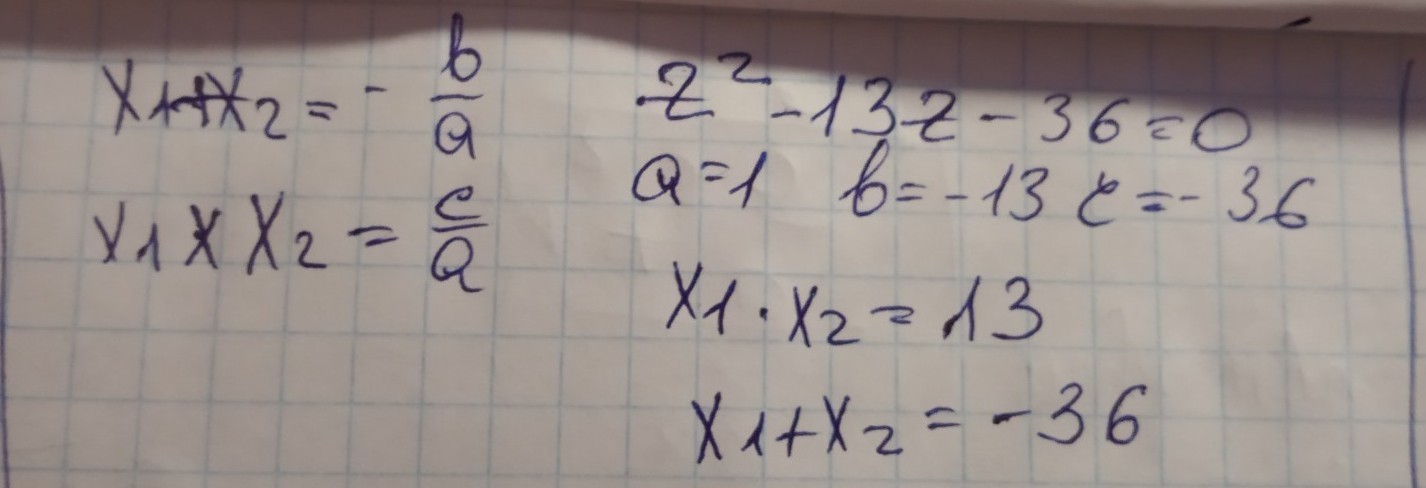 x1+x2 = - b/a
x1 x x2 = c/a
z² - 13z - 36 = 0
a=1 b=-13 c=-36
x1 · x2 = 13
x1 + x2 = -36